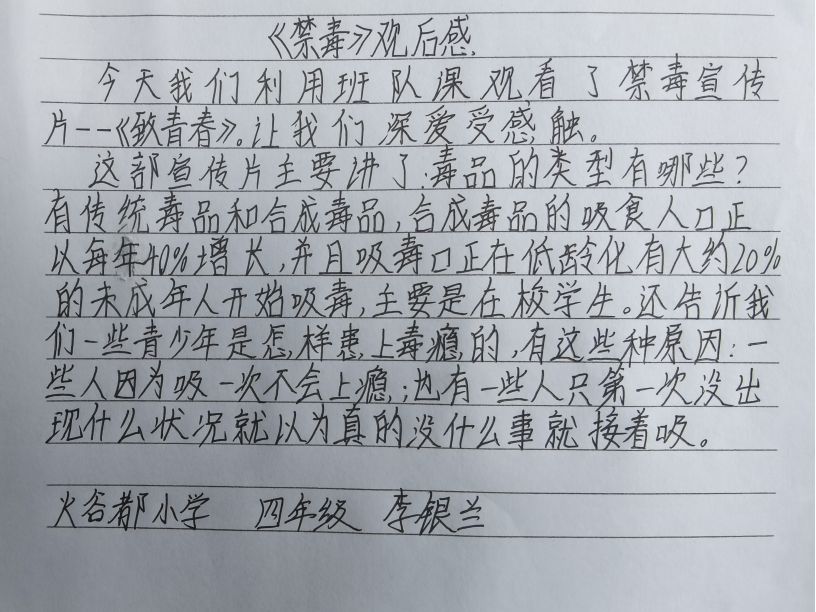 《禁毒》观后感.
今天我们利用班队课观看了禁毒宣传
片--《致青春》。让我们深爱受感触。
这部宣传片主要讲了:毒品的类型有哪些?
有传统毒品和合成毒品,合成毒品的吸食人口正
以每年40%增长,并且吸毒口正在低龄化有大约20%
的未成年人开始吸毒,主要是在校学生。还告诉我
们一些青少年是怎样患上毒瘾的,有这些种原因:一
些人因为吸一次不会上瘾;也有一些人只第一次没出
现什么状况就以为真的没什么事就接着吸。
火谷都小学 四年级 李银兰